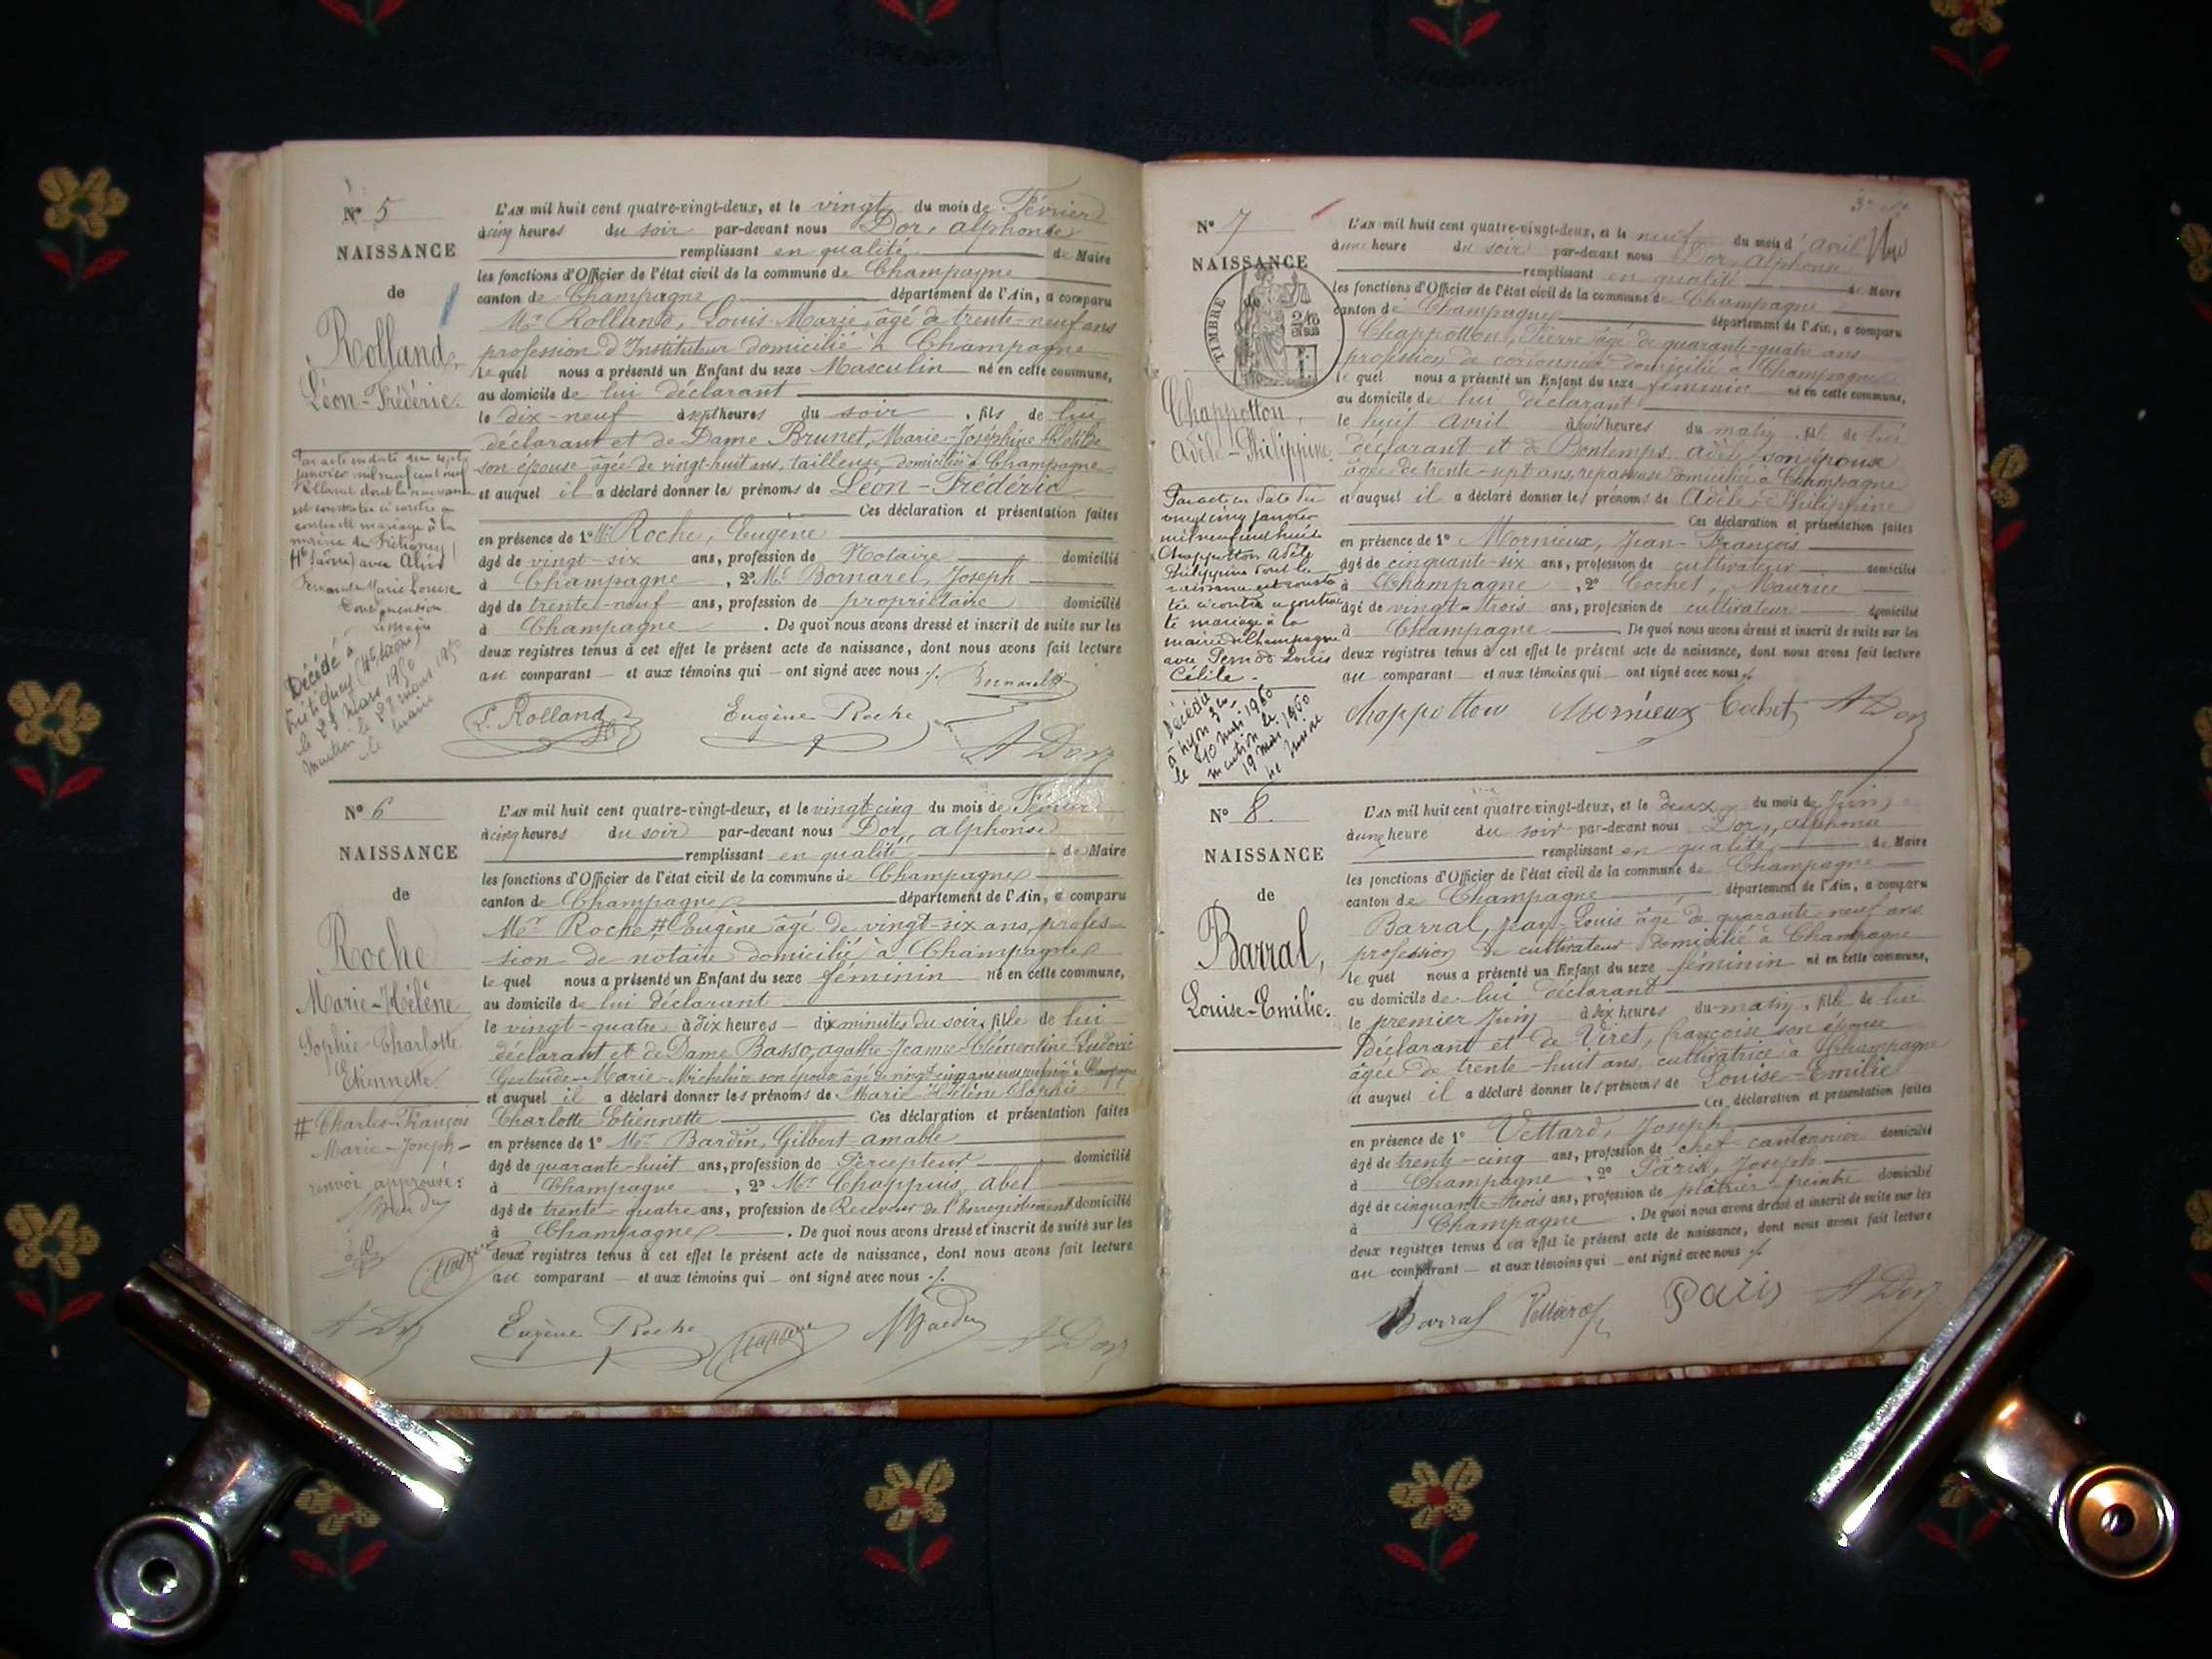 N° 5
NAISSANCE
de
Rolland,
Léon-Frédéric.
Par acte en date du sept
janvier mil neuf cent neuf
Rolland dont la naissance
est constatée ci contre a
contracté mariage à la
mairie de Frétigney
(Hte Saône) avec
Marie Louise
Décédé à
Frétigney (Hte Saône)
le 25 mars 1950
mention le 27 mars 1950
le maire
L'AN mil huit cent quatre-vingt-deux, et le vingt du mois de Février
à cinq heures du soir par-devant nous Dor, alphonse
remplissant en qualité de Maire
les fonctions d'Officier de l'état civil de la commune de Champagne
canton de Champagne département de l'Ain, a comparu
Mr Rolland, Louis-Marie, âgé de trente-neuf ans
profession d'Instituteur domicilié à Champagne
le quel nous a présenté un Enfant du sexe Masculin né en cette commune,
au domicile de lui déclarant
le dix-neuf à sept heures du soir, fils de lui
déclarant et de Dame Brunet, Marie-Joséphine Clotilde
son épouse âgée de vingt-huit ans, tailleuse, domiciliée à Champagne
et auquel il a déclaré donner les prénoms de Léon-Frédéric
Ces déclaration et présentation faites
en présence de 1° Mr Roche, Eugène
âgé de vingt-six ans, profession de Notaire domicilié
à Champagne, 2° Mr Bornarel, Joseph
âgé de trente-neuf ans, profession de propriétaire domicilié
à Champagne. De quoi nous avons dressé et inscrit de suite sur les
deux registres tenus à cet effet le présent acte de naissance, dont nous avons fait lecture
au comparant et aux témoins qui ont signé avec nous ./.
Bornarel
L. Rolland Eugène Roche
A Dor
N° 6
NAISSANCE
de
Roche
Marie-Hélène
Sophie-Charlotte
Etiennette.
# Charles-François
Marie-Joseph-
renvoi approuvé:
A Dor
L'AN mil huit cent quatre-vingt-deux, et le vingt-cinq du mois de Février
à cinq heures du soir par-devant nous Dor, alphonse
remplissant en qualité de Maire
les fonctions d'Officier de l'état civil de la commune de Champagne
canton de Champagne département de l'Ain, a comparu
Mr Roche # Eugène âgé de vingt-six ans, profes-
sion de notaire domicilié à Champagne
le quel nous a présenté un Enfant du sexe féminin né en cette commune,
au domicile de lui déclarant
le vingt-quatre à dix heures dix minutes du soir, fille de lui
déclarant et de Dame Basso, agathe Jeanne-Clémentine Ludovic
Gertrude-Marie-Micheline son épouse âgée de vingt-cinq ans sans profession à Champagne
et auquel il a déclaré donner les prénoms de Marie-Hélène Sophie
Charlotte Etiennette Ces déclaration et présentation faites
en présence de 1° Mr Bardin, Gilbert-amable
âgé de quarante-huit ans, profession de Percepteur domicilié
à Champagne, 2° Mr Chappuis, abel
âgé de trente-quatre ans, profession de Receveur de l'Enregistrement domicilié
à Champagne. De quoi nous avons dressé et inscrit de suite sur les
deux registres tenus à cet effet le présent acte de naissance, dont nous avons fait lecture
au comparant et aux témoins qui ont signé avec nous ./.
Eugène Roche Bardin A Dor
N° 7
NAISSANCE
de
TIMBRE
2/10
EN SUS
Chappotton,
Adèle-Philippine.
Par acte en date du
vingt cinq janvier
mil neuf cent huit
Chappotton Adèle
Philippine dont la
naissance est consta
tée ci contre a contrac
té mariage à la
mairie de Champagne
avec Pernod Louis
Décédée
à Lyon 3e
le 10 mai 1950
mention le
19 mai 1950
le maire
L'AN mil huit cent quatre-vingt-deux, et le neuf du mois d'avril
à une heure du soir par-devant nous Dor, alphonse
remplissant en qualité de Maire
les fonctions d'Officier de l'état civil de la commune de Champagne
canton de Champagne département de l'Ain, a comparu
Chappotton, Pierre âgé de quarante-quatre ans
profession de cordonnier domicilié à Champagne
le quel nous a présenté un Enfant du sexe féminin né en cette commune,
au domicile de lui déclarant
le huit avril à huit heures du matin, fille de lui
déclarant et de Bontemps, adèle son épouse
âgée de trente-sept ans, repasseuse domiciliée à Champagne
et auquel il a déclaré donner les prénoms de Adèle-Philippine
Ces déclaration et présentation faites
en présence de 1° Mornieux, Jean-François
âgé de cinquante-six ans, profession de cultivateur domicilié
à Champagne, 2° Cochet, Maurice
âgé de vingt-trois ans, profession de cultivateur domicilié
à Champagne. De quoi nous avons dressé et inscrit de suite sur les
deux registres tenus à cet effet le présent acte de naissance, dont nous avons fait lecture
au comparant et aux témoins qui ont signé avec nous ./.
chappotton Mornieux Cochet A Dor
N° 8.
NAISSANCE
de
Barral,
Louise-Emilie.
L'AN mil huit cent quatre-vingt-deux, et le deux du mois de Juin
à une heure du soir par-devant nous Dor, alphonse
remplissant en qualité de Maire
les fonctions d'Officier de l'état civil de la commune de Champagne
canton de Champagne département de l'Ain, a comparu
Barral, Jean-Louis âgé de quarante-neuf ans
profession de cultivateur domicilié à Champagne
le quel nous a présenté un Enfant du sexe féminin né en cette commune,
au domicile de lui déclarant
le premier Juin à dix heures du matin, fille de lui
déclarant et de Viret, françoise son épouse
âgée de trente-huit ans, cultivatrice à Champagne
et auquel il a déclaré donner les prénoms de Louise-Emilie
Ces déclaration et présentation faites
en présence de 1° Vettard, Joseph
âgé de trente-cinq ans, profession de chef cantonnier domicilié
à Champagne, 2° Paris, Joseph
âgé de cinquante-trois ans, profession de plâtrier-peintre domicilié
à Champagne. De quoi nous avons dressé et inscrit de suite sur les
deux registres tenus à cet effet le présent acte de naissance, dont nous avons fait lecture
au comparant et aux témoins qui ont signé avec nous ./.
Barral Vettard Paris A Dor